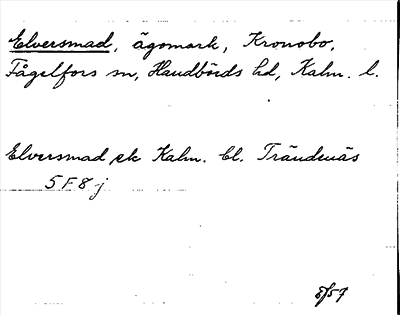 Elversmad, ägomark, Kronobo,
Fågelfors sn, Handbörds hd, Kalm. l.
Elversmad ek Kalm. bl. Trändenäs
5 F 8 j
8/57